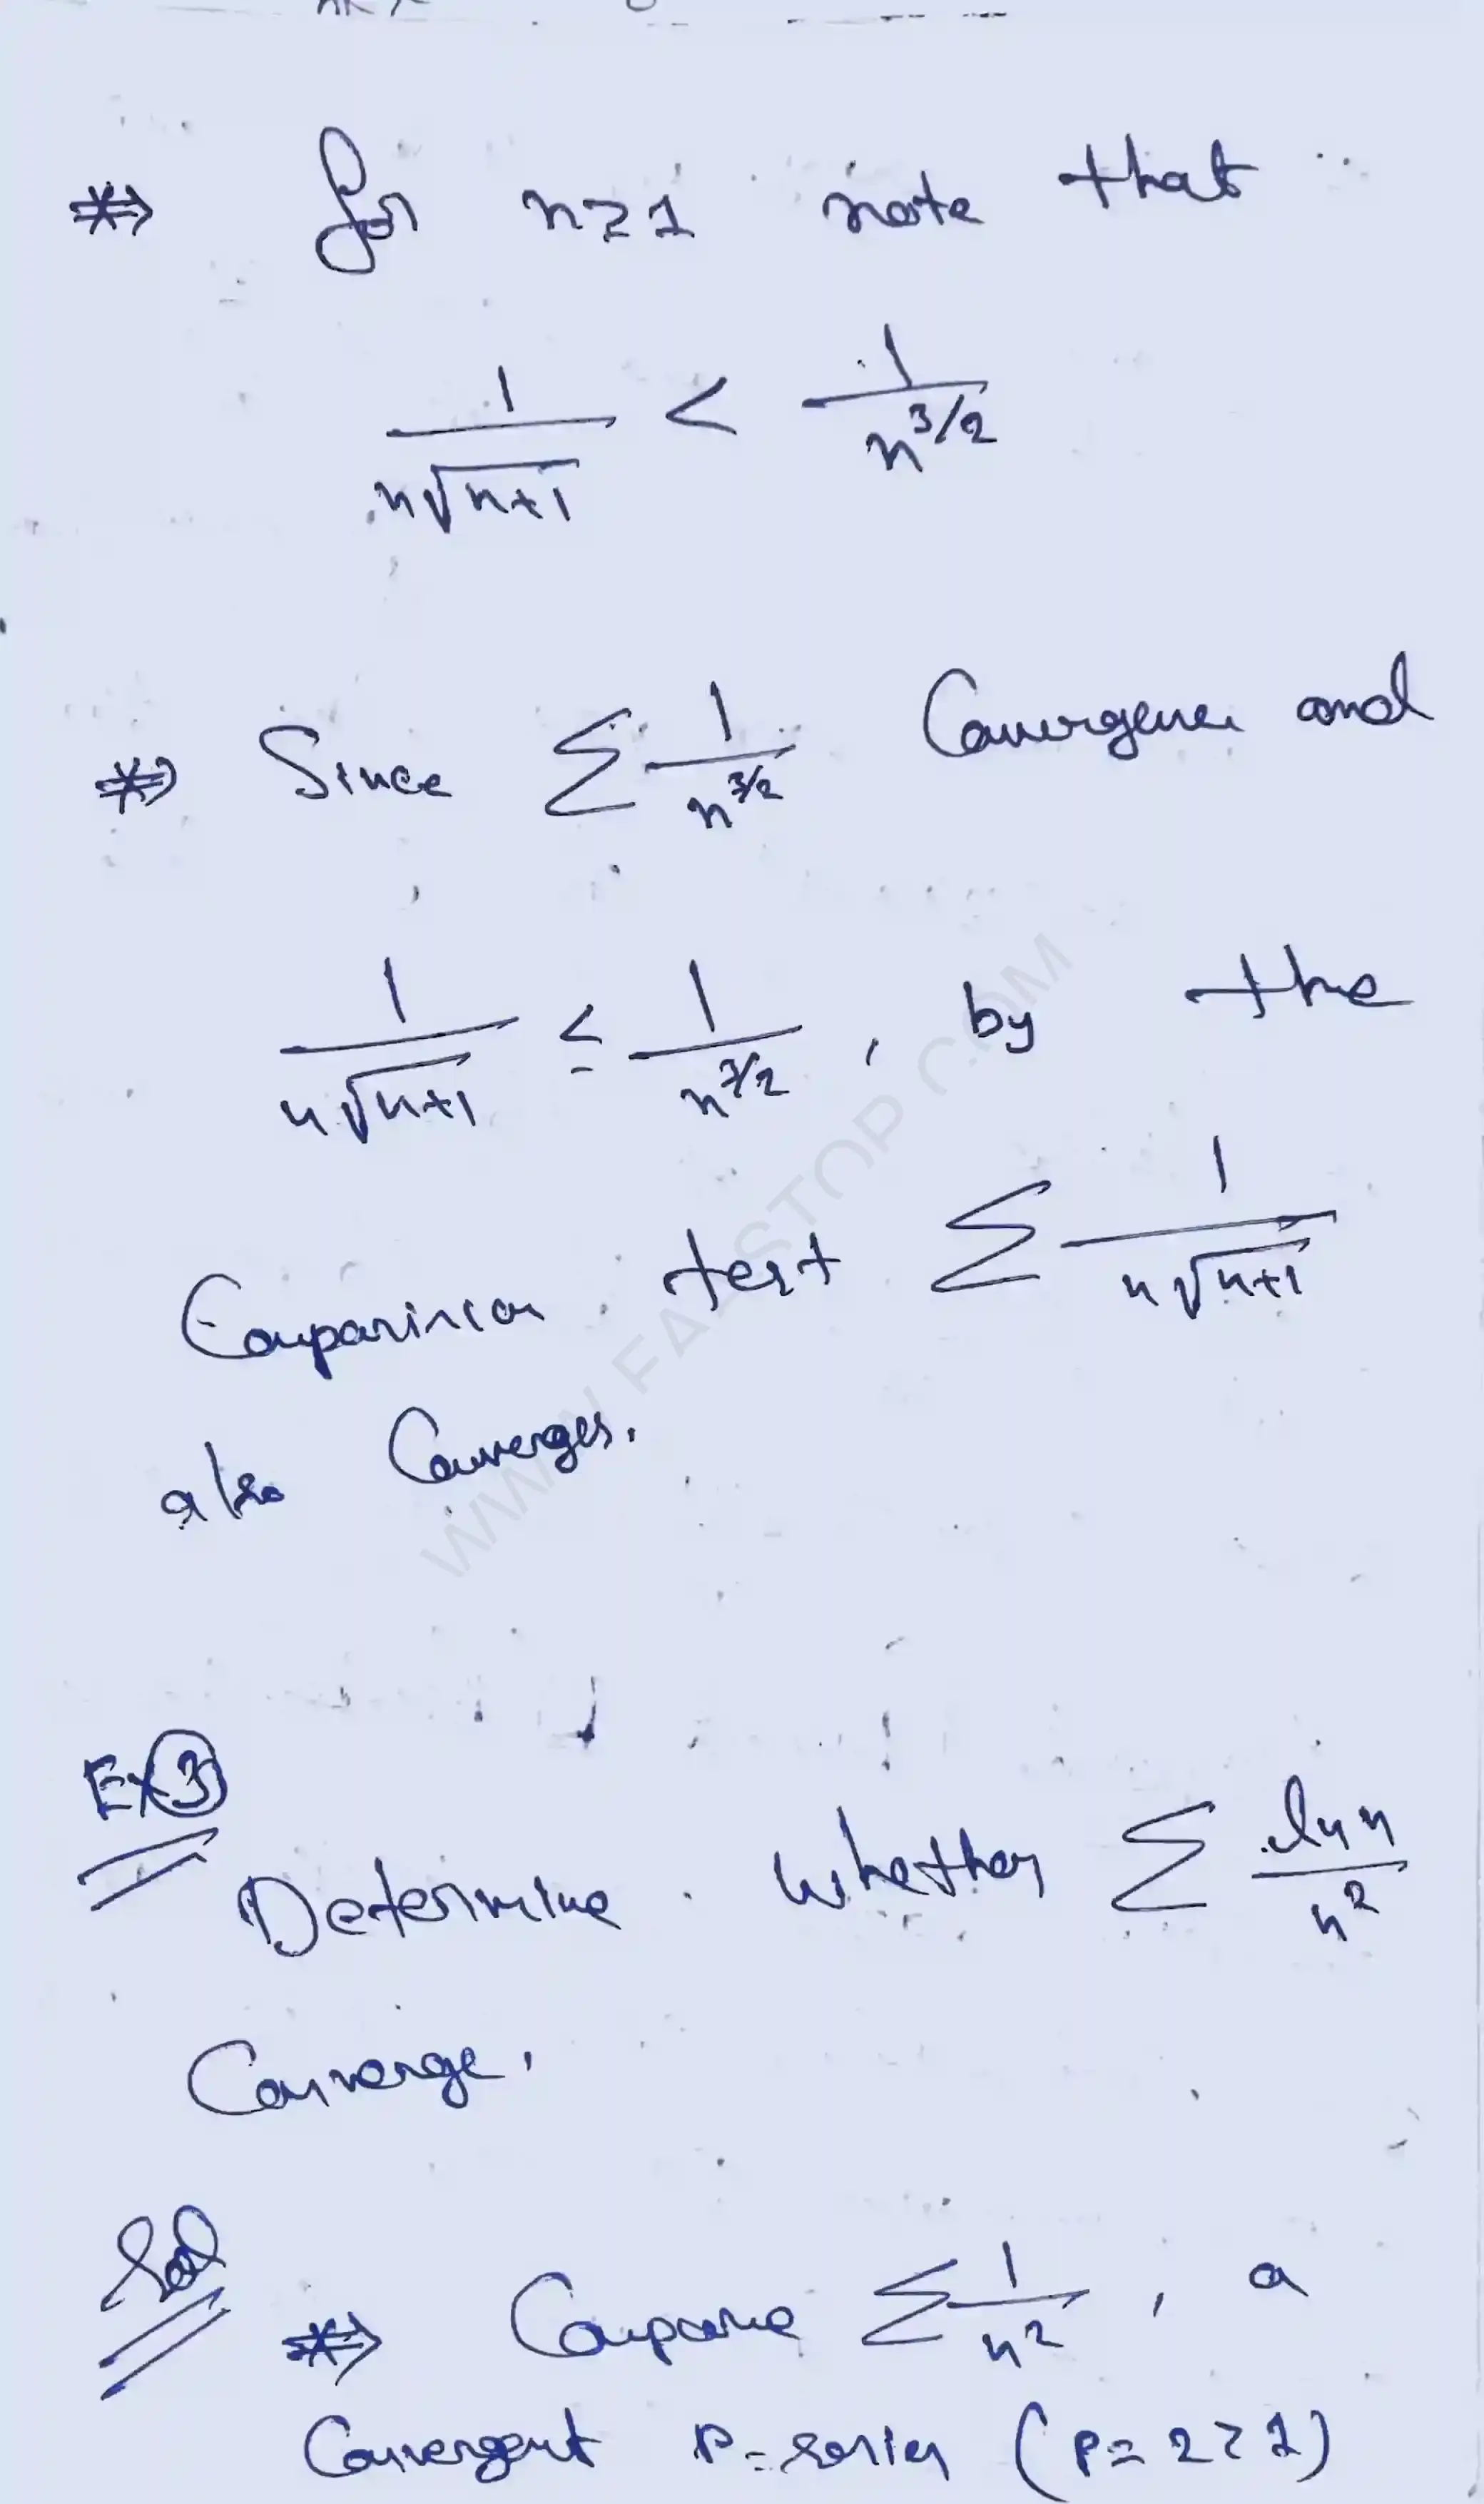 *⇒ for n≥1 note that
1/(n√(n+1)) < 1/n^(3/2)
*⇒ Since Σ 1/n^(3/2) Convergence and
1/(n√(n+1)) ≤ 1/n^(3/2), by the
Comparision test Σ 1/(n√(n+1))
also Converges.
Ex③
Determine whether Σ ln n/n²
Converge.
Sol
*⇒ Compare Σ 1/n², a
Convergent P-series (P=2>1)
WWW.FAESTOP.COM